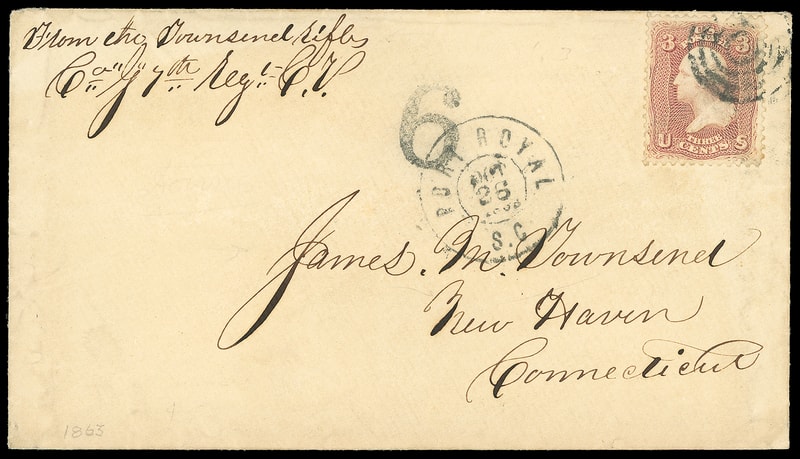 From the Townsend Rifles
Co "I" 7th Regt C.V.
3 3
U CENTS S
6
PORT ROYAL
OCT
26
1863
S.C.
James. M. Townsend
New Haven
Connecticut
1863